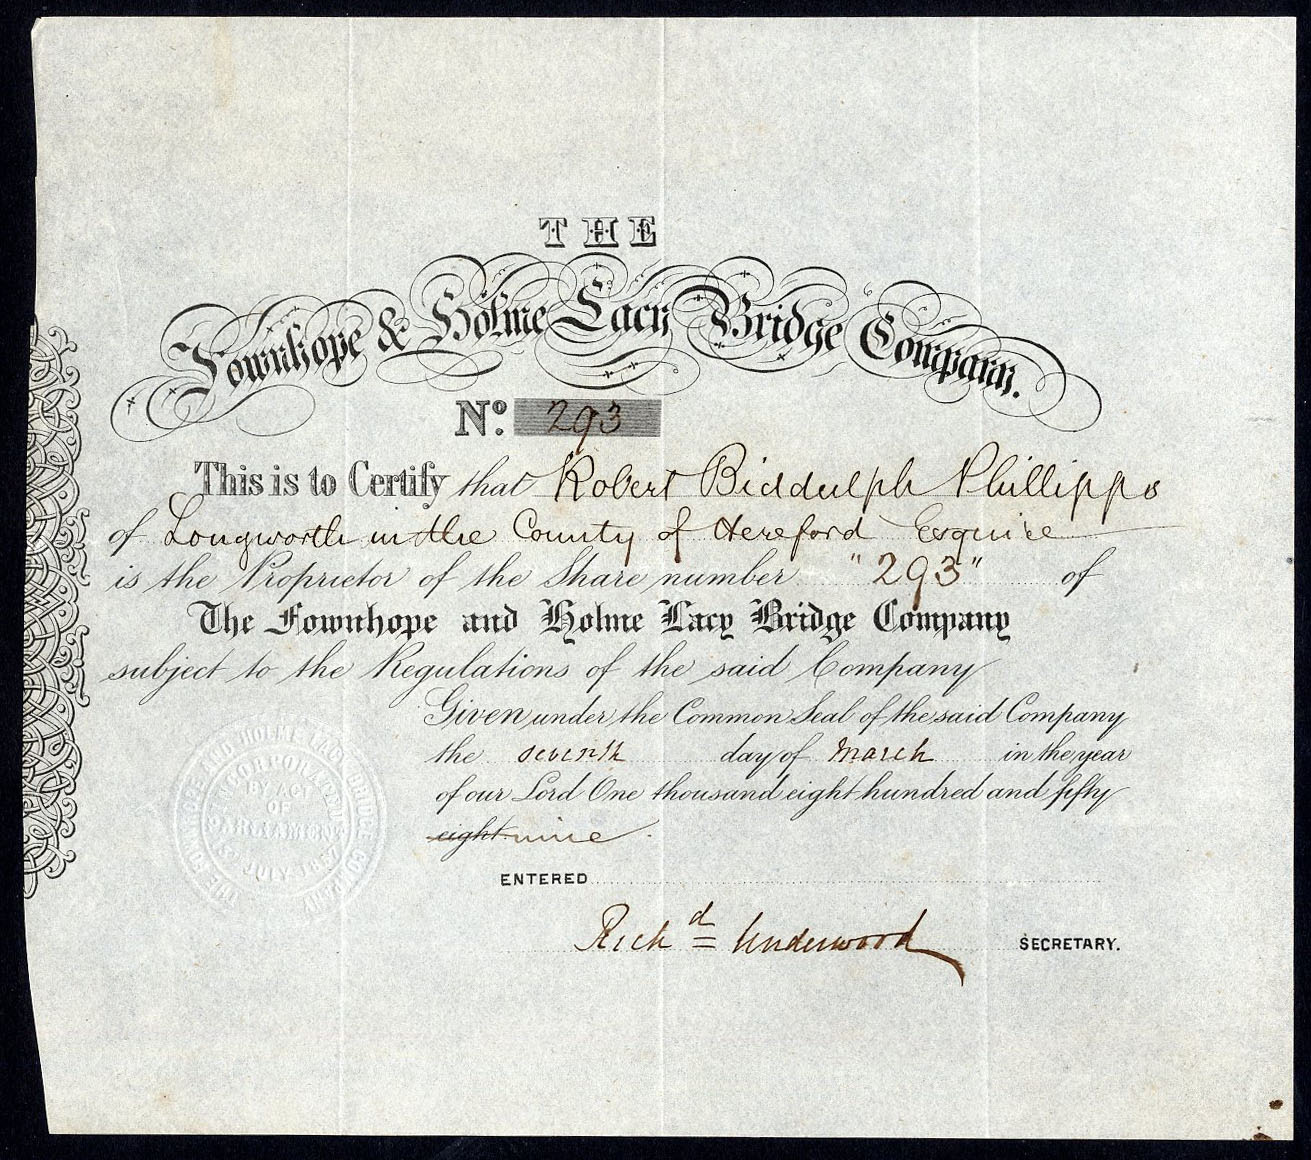 THE
Fownhope & Holme Lacy Bridge Company.
No. 293
This is to Certify that Robert Biddulph Phillipps
of Longworth in the County of Hereford Esquire
is the Proprietor of the Share number "293" of
The Fownhope and Holme Lacy Bridge Company
subject to the Regulations of the said Company
Given under the Common Seal of the said Company
the seventh day of March in the year
of our Lord One thousand eight hundred and fifty
eight nine.
ENTERED
Richd Underwood SECRETARY.
THE FOWNHOPE AND HOLME LACY BRIDGE COMPANY
INCORPORATED
BY ACT
OF
PARLIAMENT
JULY 1857